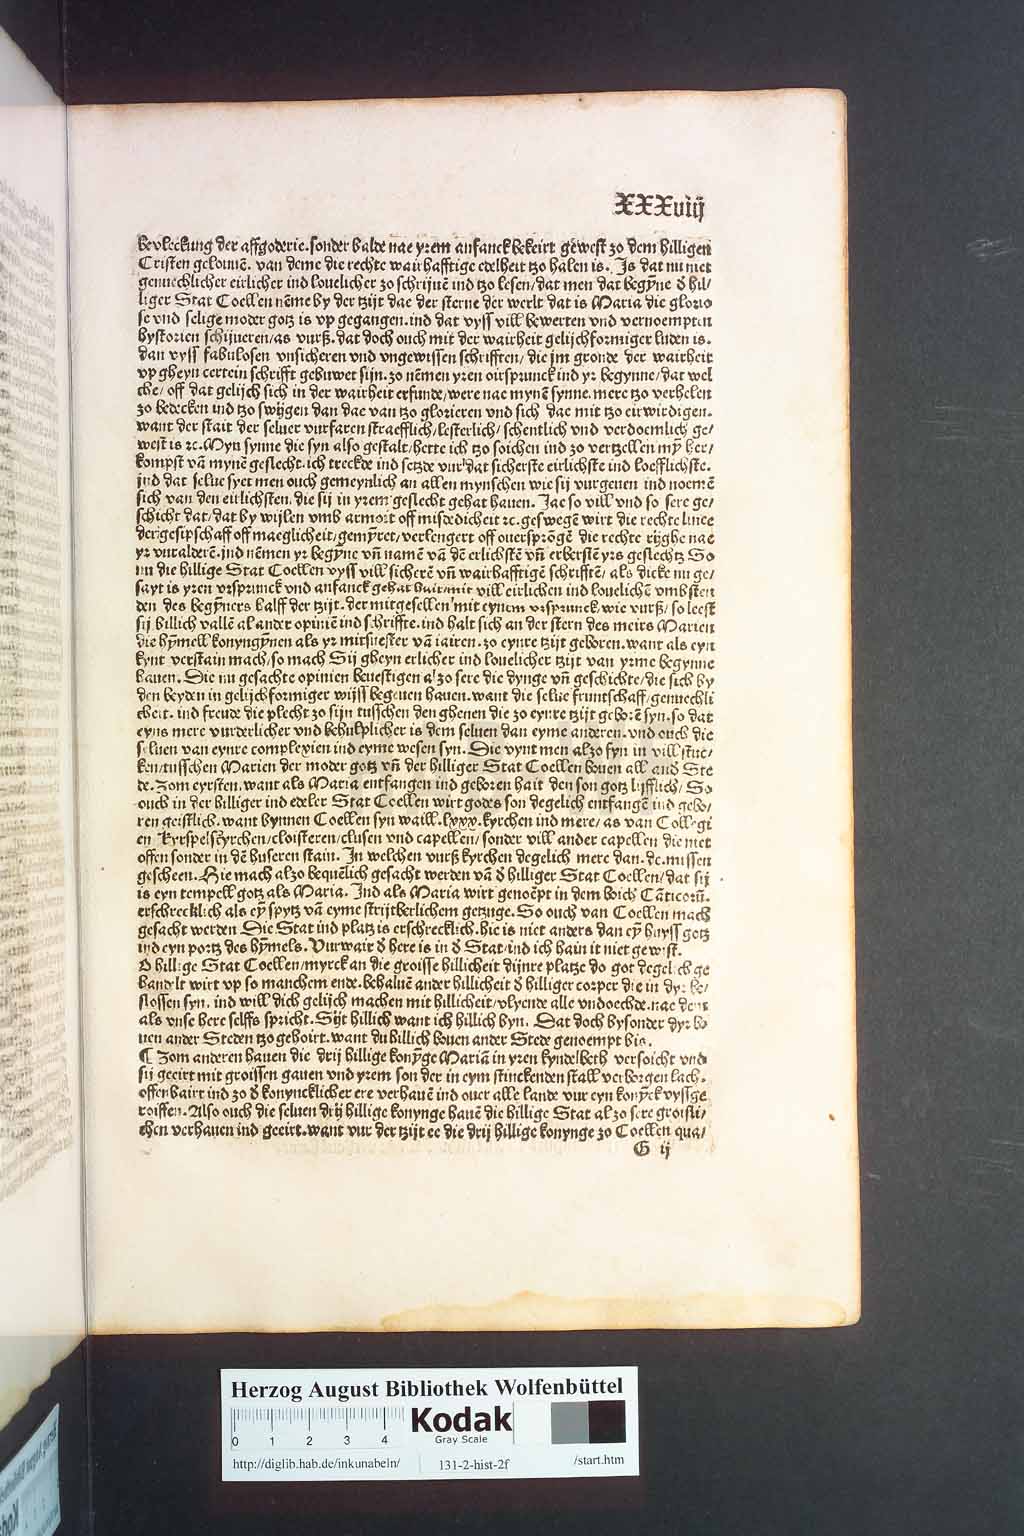 XXXviij
bevleckung der affgoderie. sonder balde nae yrem anfanck bekeirt gewest zo dem hilligen
Cristen gelouuē. van deme die rechte wairhafftige edelheit tzo halen is. Is dat nu niet
genuechlicher eirlicher ind louelicher zo schrijuē ind tzo lesen/ dat men dat begȳne d hil/
liger Stat Coellen nēme by der tzijt dae der sterne der werlt dat is Maria die glorio
se vnd selige moder gotz is vp gegangen. ind dat vyss vill bewerten vnd vernoempten
hystorien schijueren/ as vurß. dat doch ouch mit der wairheit gelijchformiger luden is.
dan vyss fabulosen vnsicheren vnd vngewissen schrifften/ die jm gronde der wairheit
vp gheyn certein schrifft gebuwet sijn. zo nēmen yren oirsprunck ind yr begynne/ dat wel
che/ off dat gelijch sich in der wairheit erfunde/ were nae mynē synne. mere tzo verhelen
zo bedecken ind tzo swijgen dan dae van tzo glorieren vnd sich dae mit tzo eirwirdigen.
want der stait der seluer vurfaren straefflich/ lesterlich/ schentlich vnd verdoemlich ge/
west is ꝛc. Myn synne die syn also gestalt/ hette ich tzo soichen ind zo vertzellen mȳ her/
kompst vā mynē geslecht. ich treckde ind setzde vur dat sicherste eirlichste ind loefflichste.
ind dat selue syet men ouch gemeynlich an allen mynschen wie sij vurgeuen ind noemē
sich van den eirlichsten. die sij in yrem geslecht gehat hauen. Jae so vill vnd so sere ge/
schicht dat/ dat by wijlen vmb armoit off misdedicheit ꝛc. geswegē wirt die rechte linee
der gesipschaff off maeglicheit/ gemȳret/ verlengert off ouersprōgē die rechte rijghe nae
yr vuralderē. ind nēmen yr begȳne vn̄ namē vā dē erlichstē vn̄ erberstē yrs geslechtz So
nu die hillige Stat Coellen vyss vill sicherē vn̄ wairhafftigē schrifftē/ als dicke nu ge/
sayt is yren vrsprunck vnd anfanck gehat hait/ mit vill eirlichen ind louelichē vmbstē
den des begȳners halff der tzijt. der mitgesellen mit eynem vrsprunck. wie vurß/ so leest
sij billich vallē al ander opiniē ind schriffte. ind halt sich an der stern des meirs Marien
die hȳmell konyngȳnen als yr mitsuester vā iairen. zo eynre tzijt geboren. want als eyn
kynt verstain mach/ so mach Sij gheyn erlicher ind louelicher tzijt van yrme begynne
hauen. Die nu gesachte opinien beuestigen al zo sere die dynge vn̄ geschichte/ die sich by
den beyden in gelijchformiger wijss begeuen hauen. want die selue fruntschaff/ genuechli
cheit. ind freude die plecht zo sijn tusschen den ghenen die zo eynre tzijt geborē syn. so dat
eyns mere vurderlicher vnd behulplicher is dem seluen dan eyme anderen. vnd ouch die
seluen van eynre complexien ind eyme wesen syn. Die vynt men alzo syn in vill stuc/
ken/ tusschen Marien der moder gotz vn̄ der hilliger Stat Coellen bouen all and Ste
de. Zom eyrsten. want als Maria entfangen ind geboren hait den son gotz lijfflich/ So
ouch in der hilliger ind edeler Stat Coellen wirt godes son degelich entfangē ind gebo/
ren geistlich. want bynnen Coellen syn waill. lxxx. kyrchen ind mere/ as van Collegi
en Kyrspelskyrchen/ cloisteren/ clusen vnd capellen/ sonder vill ander capellen die niet
offen sonder in dē huseren stain. In welchen vurß kyrchen degelich mere dan. dc. missen
gescheen. Hie mach alzo bequēlich gesacht werden vā d hilliger Stat Coellen/ dat sij
is eyn tempell gotz als Maria. Ind als Maria wirt genoēpt in dem boich Cāticorū.
erschrecklich als eȳ spytz vā eyme strijtberlichem getzuge. So ouch van Coellen mach
gesacht werden Die Stat ind platz is erschrecklich. hie is niet anders dan eȳ huyss gotz
ind eyn portz des hȳmels. Vurwair d here is in d Stat/ ind ich hain it niet gewist.
O hillige Stat Coellen/ myrck an die groisse hillicheit dijnre platze do got degelich ge
handelt wirt vp so manchem ende. behaluē ander hillicheit d hilliger corper die in dyr be/
slossen syn. ind will dich gelijch machen mit hillicheit/ vlyende alle vndoechde. nae dem
als vnse here selffs spricht. Sijt hillich want ich hillich byn. Dat doch bysonder dyr bo
uen ander Steden tzo gehoirt. want du hillich bouen ander Stede genoempt bis.
¶ Zom anderen hauen die drij hillige konȳge Mariā in yren kyndelbeth versoicht vnd
sij geeirt mit groissen gauen vnd yrem son der in eym stinckenden stall verborgen lach.
offenbairt ind zo d konyncklicher ere verhauē ind ouer alle lande vur eyn konȳck vyssge
roiffen. Also ouch die seluen drij hillige konynge hauē die hillige Stat al zo sere groisli/
chen verhauen ind geeirt. want vur der tzijt ee die drij hillige konynge zo Coellen qua/
G ij
Herzog August Bibliothek Wolfenbüttel
0 1 2 3 4
Kodak
Gray Scale
http://diglib.hab.de/inkunabeln/ 131-2-hist-2f /start.htm